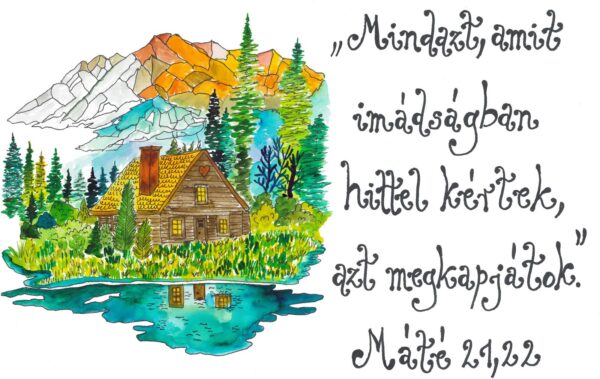 „Mindazt, amit
imádságban
hittel kértek,
azt megkapjátok.”
Máté 21,22